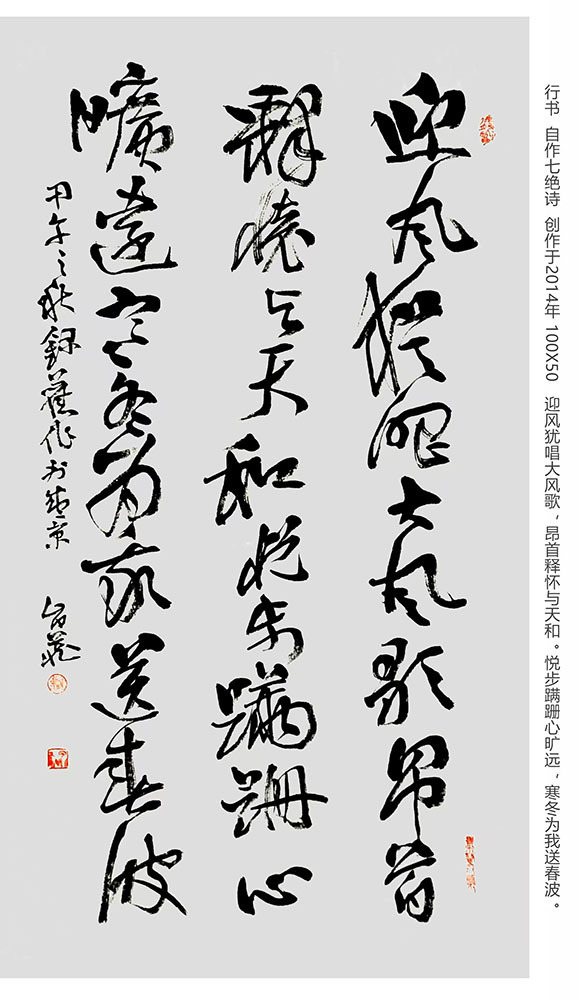 迎风犹唱大风歌昂首
释怀与天和悦步蹒跚心
旷远寒冬为我送春波
甲午之秋录旧作于盛京
行书 自作七绝诗 创作于2014年 100X50 迎风犹唱大风歌，昂首释怀与天和。悦步蹒跚心旷远，寒冬为我送春波。